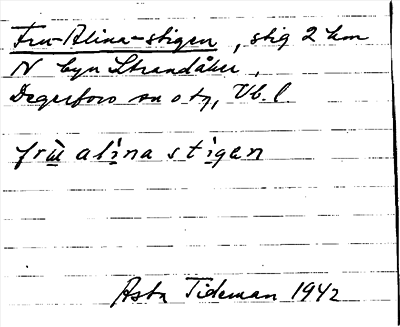 Fru-Alina-stigen, stig 2 km
N byn Strandåker,
Degerfors sn o tg, Vb. l.
frù alina stigen
Asta Tideman 1942